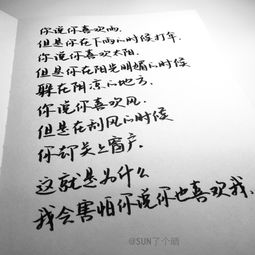 你说你喜欢雨，
但是你在下雨的时候打伞。
你说你喜欢太阳，
但是你在阳光明媚的时候
躲在阴凉的地方。
你说你喜欢风，
但是在刮风的时候
你却关上窗户。
这就是为什么
我会害怕你说你也喜欢我。
@SUN了个晴